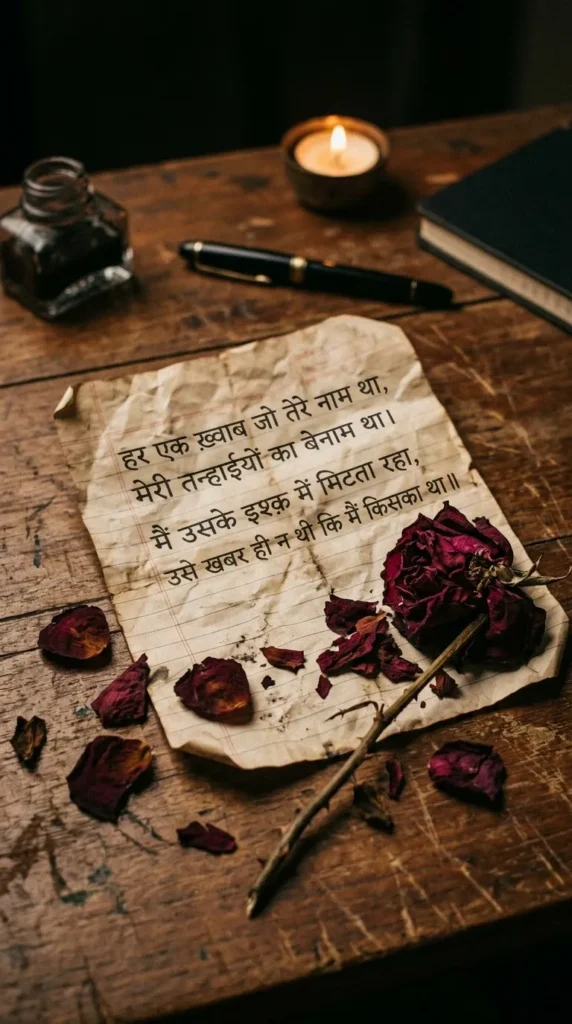 हर एक ख़्वाब जो तेरे नाम था,
मेरी तन्हाईयों का बेनाम था।
मैं उसके इश्क़ में मिटता रहा,
उसे खबर ही न थी कि मैं किसका था॥